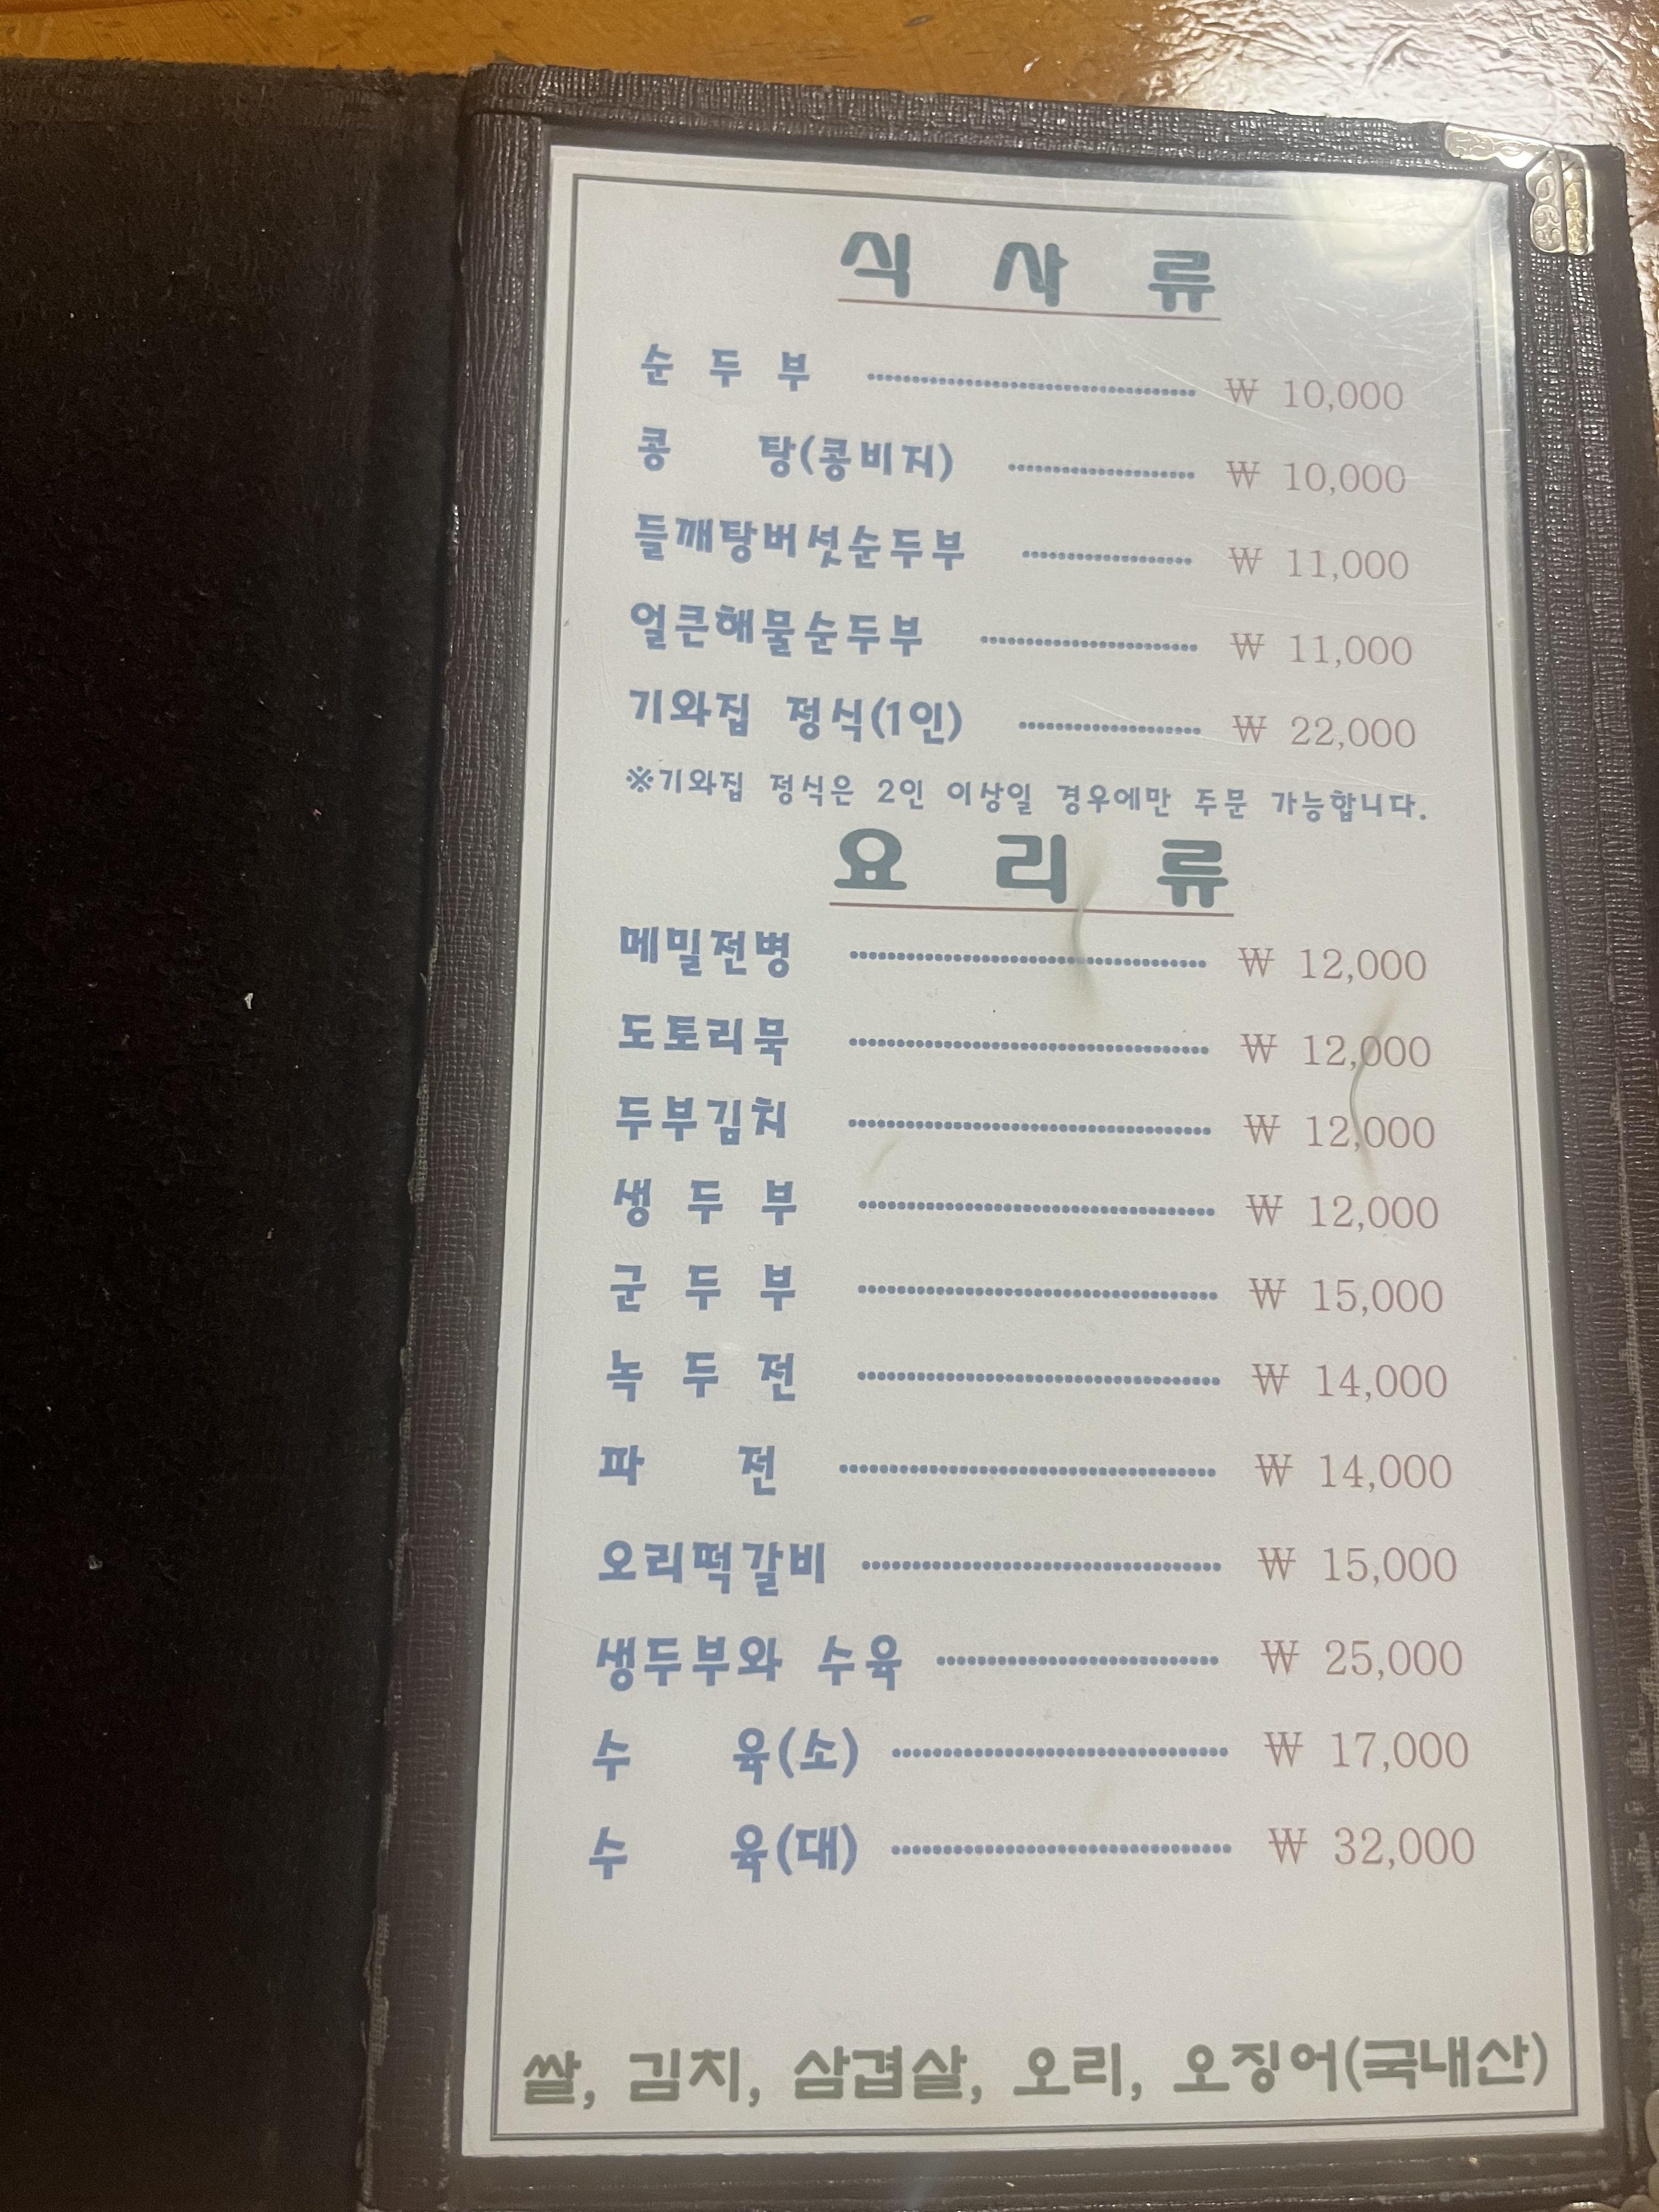 식 사 류
순 두 부 ₩ 10,000
콩 탕(콩비지) ₩ 10,000
들깨탕버섯순두부 ₩ 11,000
얼큰해물순두부 ₩ 11,000
기와집 정식(1인) ₩ 22,000
※기와집 정식은 2인 이상일 경우에만 주문 가능합니다.
요 리 류
메밀전병 ₩ 12,000
도토리묵 ₩ 12,000
두부김치 ₩ 12,000
생 두 부 ₩ 12,000
군 두 부 ₩ 15,000
녹 두 전 ₩ 14,000
파 전 ₩ 14,000
오리떡갈비 ₩ 15,000
생두부와 수육 ₩ 25,000
수 육(소) ₩ 17,000
수 육(대) ₩ 32,000
쌀, 김치, 삼겹살, 오리, 오징어(국내산)